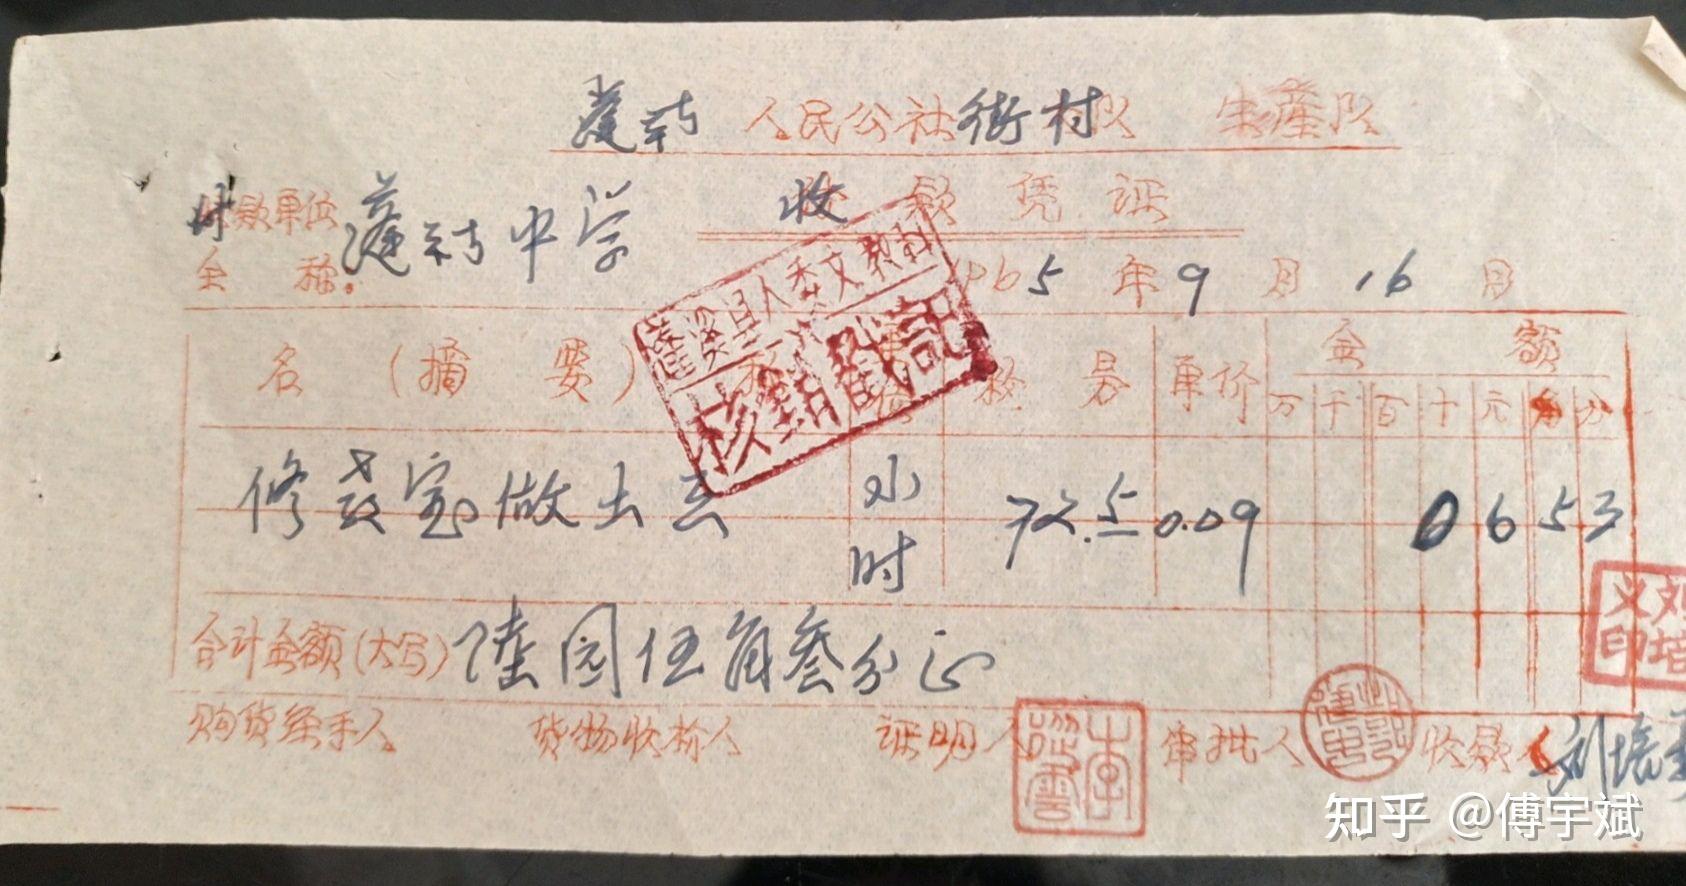 蓬莱人民公社街村队 生产队
付款单位 收款凭证
全 称：蓬莱中学 1965年9月16日
蓬溪县人委文教科
核銷戳記
名（摘 要） 单价 金 额
万 千 百 十 元 角 分
修 室做出 小时 72.5 0.09 0 6 5 3
合计金额（大写）陆园伍角叁分正
刘培义印
购货经手人 货物收拾人 证明人 审批人 收款人 刘培义
李 雲
知乎 @傅宇斌